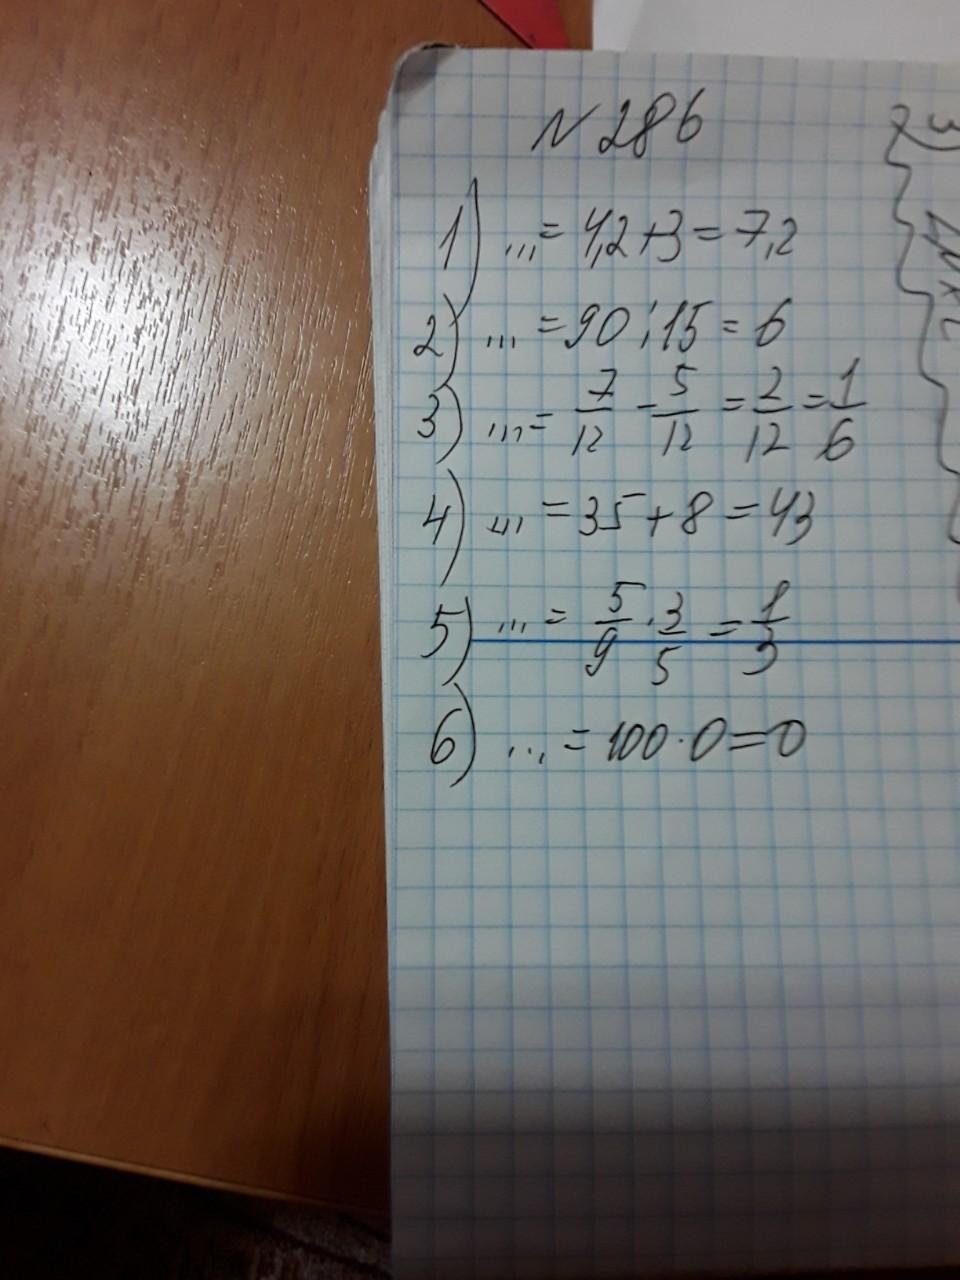 N 286
1) ... = 4,2+3 = 7,2
2) ... = 90 : 15 = 6
3) ... = 7/12 - 5/12 = 2/12 = 1/6
4) ... = 35 + 8 = 43
5) ... = 5/9 · 3/5 = 1/3
6) ... = 100 · 0 = 0